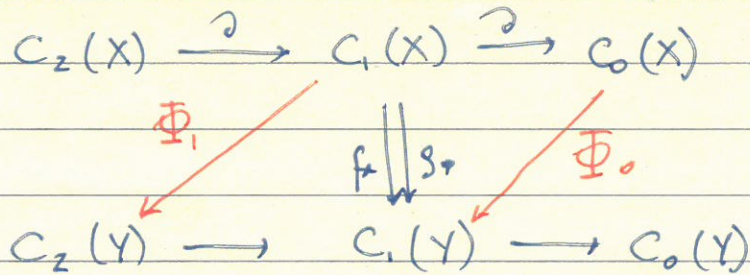 C₂(X) ∂→ C₁(X) ∂→ C₀(X)
Φ₁ f* g* Φ₀
C₂(Y) → C₁(Y) → C₀(Y)